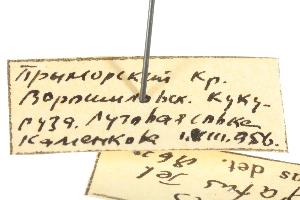 Приморский кр.
Ворошиловск. Куку-
руза. Луговая совка
Каменкова 1.VIII.956.
as det.